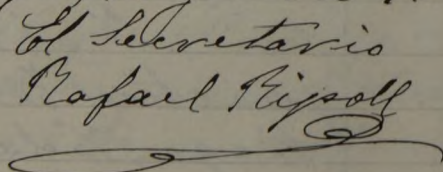 El Secretario
Rafael Ripoll